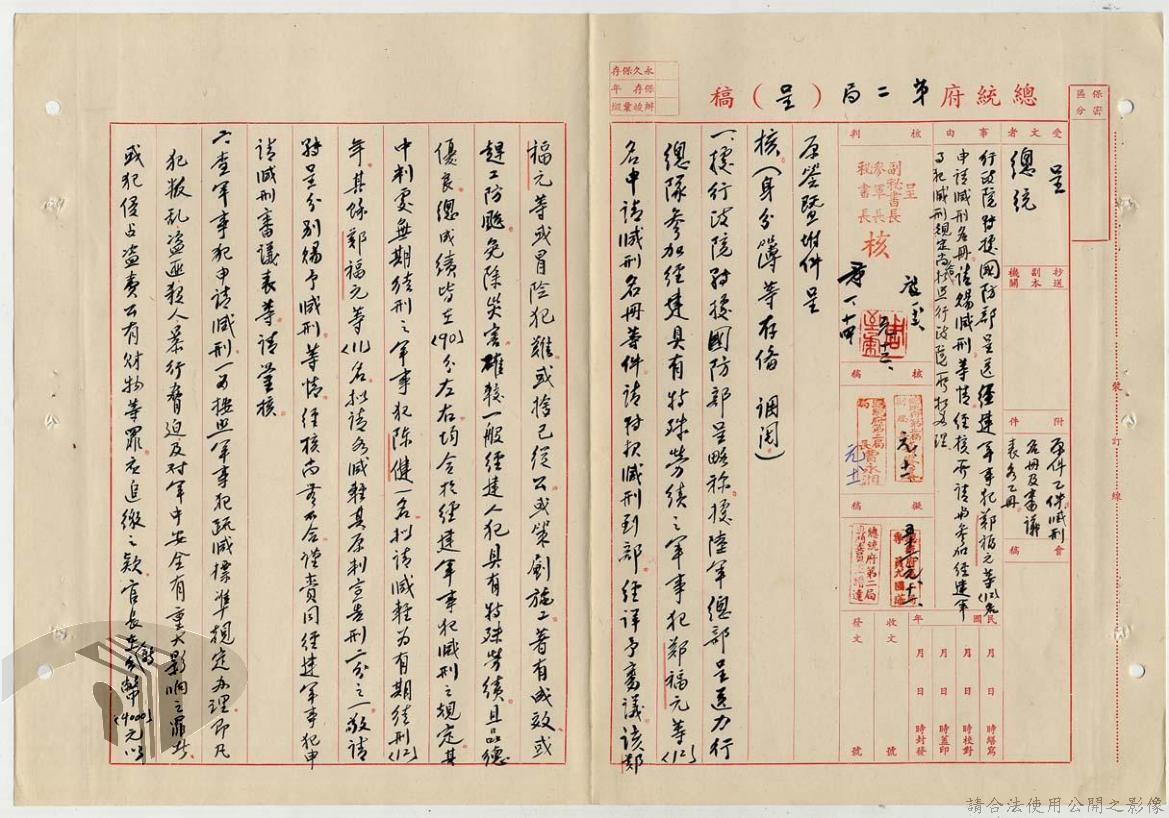 保密
區分
總統府第二局（呈）稿
永久保存
保存 年
辦後彙繳
受文者
呈
總統
抄送
副本
機關
附件
原件乙件減刑
名冊及審議
表各乙冊
會稿
事由
行政院轉據國防部呈送經建軍事犯鄭福元等(12)名
申請減刑名冊請賜減刑等情經核所請與參加經建軍
事犯減刑規定尚
核判
呈
副秘書長
參軍長
秘書長
核
核稿
擬稿
總統府第二局
民國 年
月 日 時繕寫
月 日 時校對
月 日 時蓋印
月 日 時封發
收文 號
發文 號
裝
訂
線
原簽暨附件呈
核（身分簿等存備 調閱）
一、據行政院轉據國防部呈略称據陸軍總部呈送力行
總隊參加經建具有特殊勞績之軍事犯鄭福元等(12)
名申請減刑名冊等件請轉報減刑到部經詳予審議該鄭
福元等或冒險犯難或捨己從公或策劃施工著有成效或
趕工防颱免除災害確較一般經建人犯具有特殊勞績且品德
優良總成績皆在(90)分左右均合於經建軍事犯減刑之規定其
中判處無期徒刑之軍事犯陳健一名拟請減輕為有期徒刑(12)
年其餘鄭福元等(11)名拟請各減輕其原判宣告刑二分之一敬請
轉呈分別賜予減刑等情經核尚無不合謹賫同經建軍事犯申
請減刑審議表等請鑒核
二、查軍事犯申請減刑一方按照軍事犯疏減標準規定办理即凡
犯叛乱盜匪殺人暴行脅迫及對軍中安全有重大影响之罪者
或犯侵占盜賣公有財物等罪應追繳之款官長在台幣(9000)元以
請合法使用公開之影像